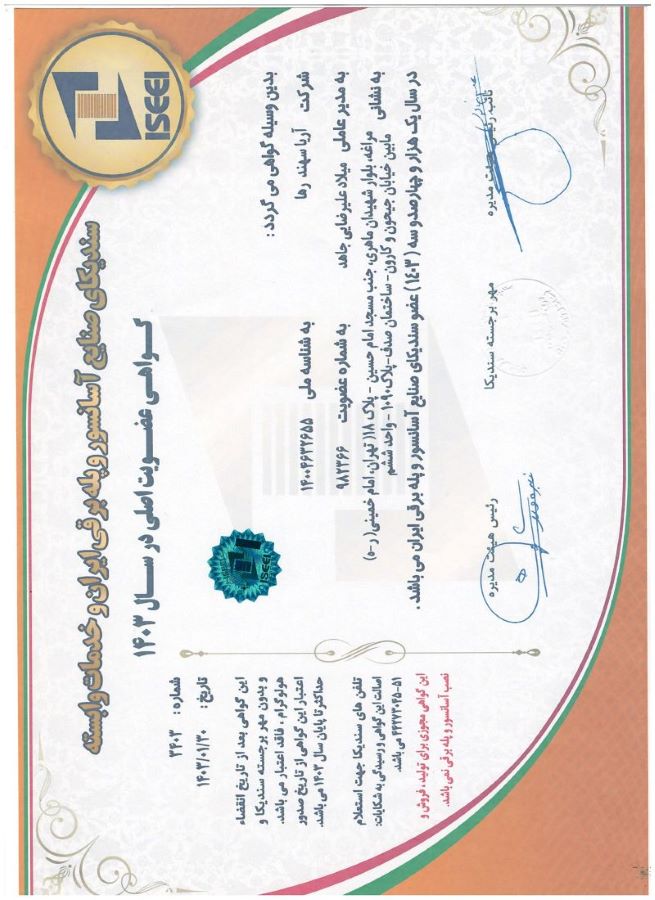 ISEEI
سندیکای صنایع آسانسور و پله برقی ایران و خدمات وابسته
گواهی عضویت اصلی در سال ۱۴۰۳
بدین وسیله گواهی می گردد :
شرکت آریا سهند رها به شناسه ملی ۱۴۰۰۴۶۳۲۶۵۵
به مدیر عاملی میلاد علیرضایی جاهد به شماره عضویت ۹۸۲۳۶۶
به نشانی مراغه، بلوار شهیدان ماهری، جنب مسجد امام حسین - پلاک ۱۸( تهران، امام خمینی( ر-ه)
مابین خیابان جیحون و کارون - ساختمان صدف-پلاک۱۰۹۰ - واحد ششم
در سال یک هزار و چهارصد و سه ( ۱۴۰۳ ) عضو سندیکای صنایع آسانسور و پله برقی ایران می باشد .
نائب رئیس هیئت مدیره
مهر برجسته سندیکا
رئیس هیئت مدیره
ISEEI
شماره : ۳۴۰۳
تاریخ: ۱۴۰۳/۰۱/۳۰
این گواهی بعد از تاریخ انقضاء
و بدون مهر برجسته سندیکا و
هولوگرام ، فاقد اعتبار می باشد.
اعتبار این گواهی از تاریخ صدور
حداکثر تا پایان سال ۱۴۰۳ می باشد.
تلفن های سندیکا جهت استعلام
اصالت این گواهی و رسیدگی به شکایات:
۵۱-۶۶۴۷۳۰۴۵ می باشد.
این گواهی مجوزی برای تولید ، فروش و
نصب آسانسور و پله برقی نمی باشد.